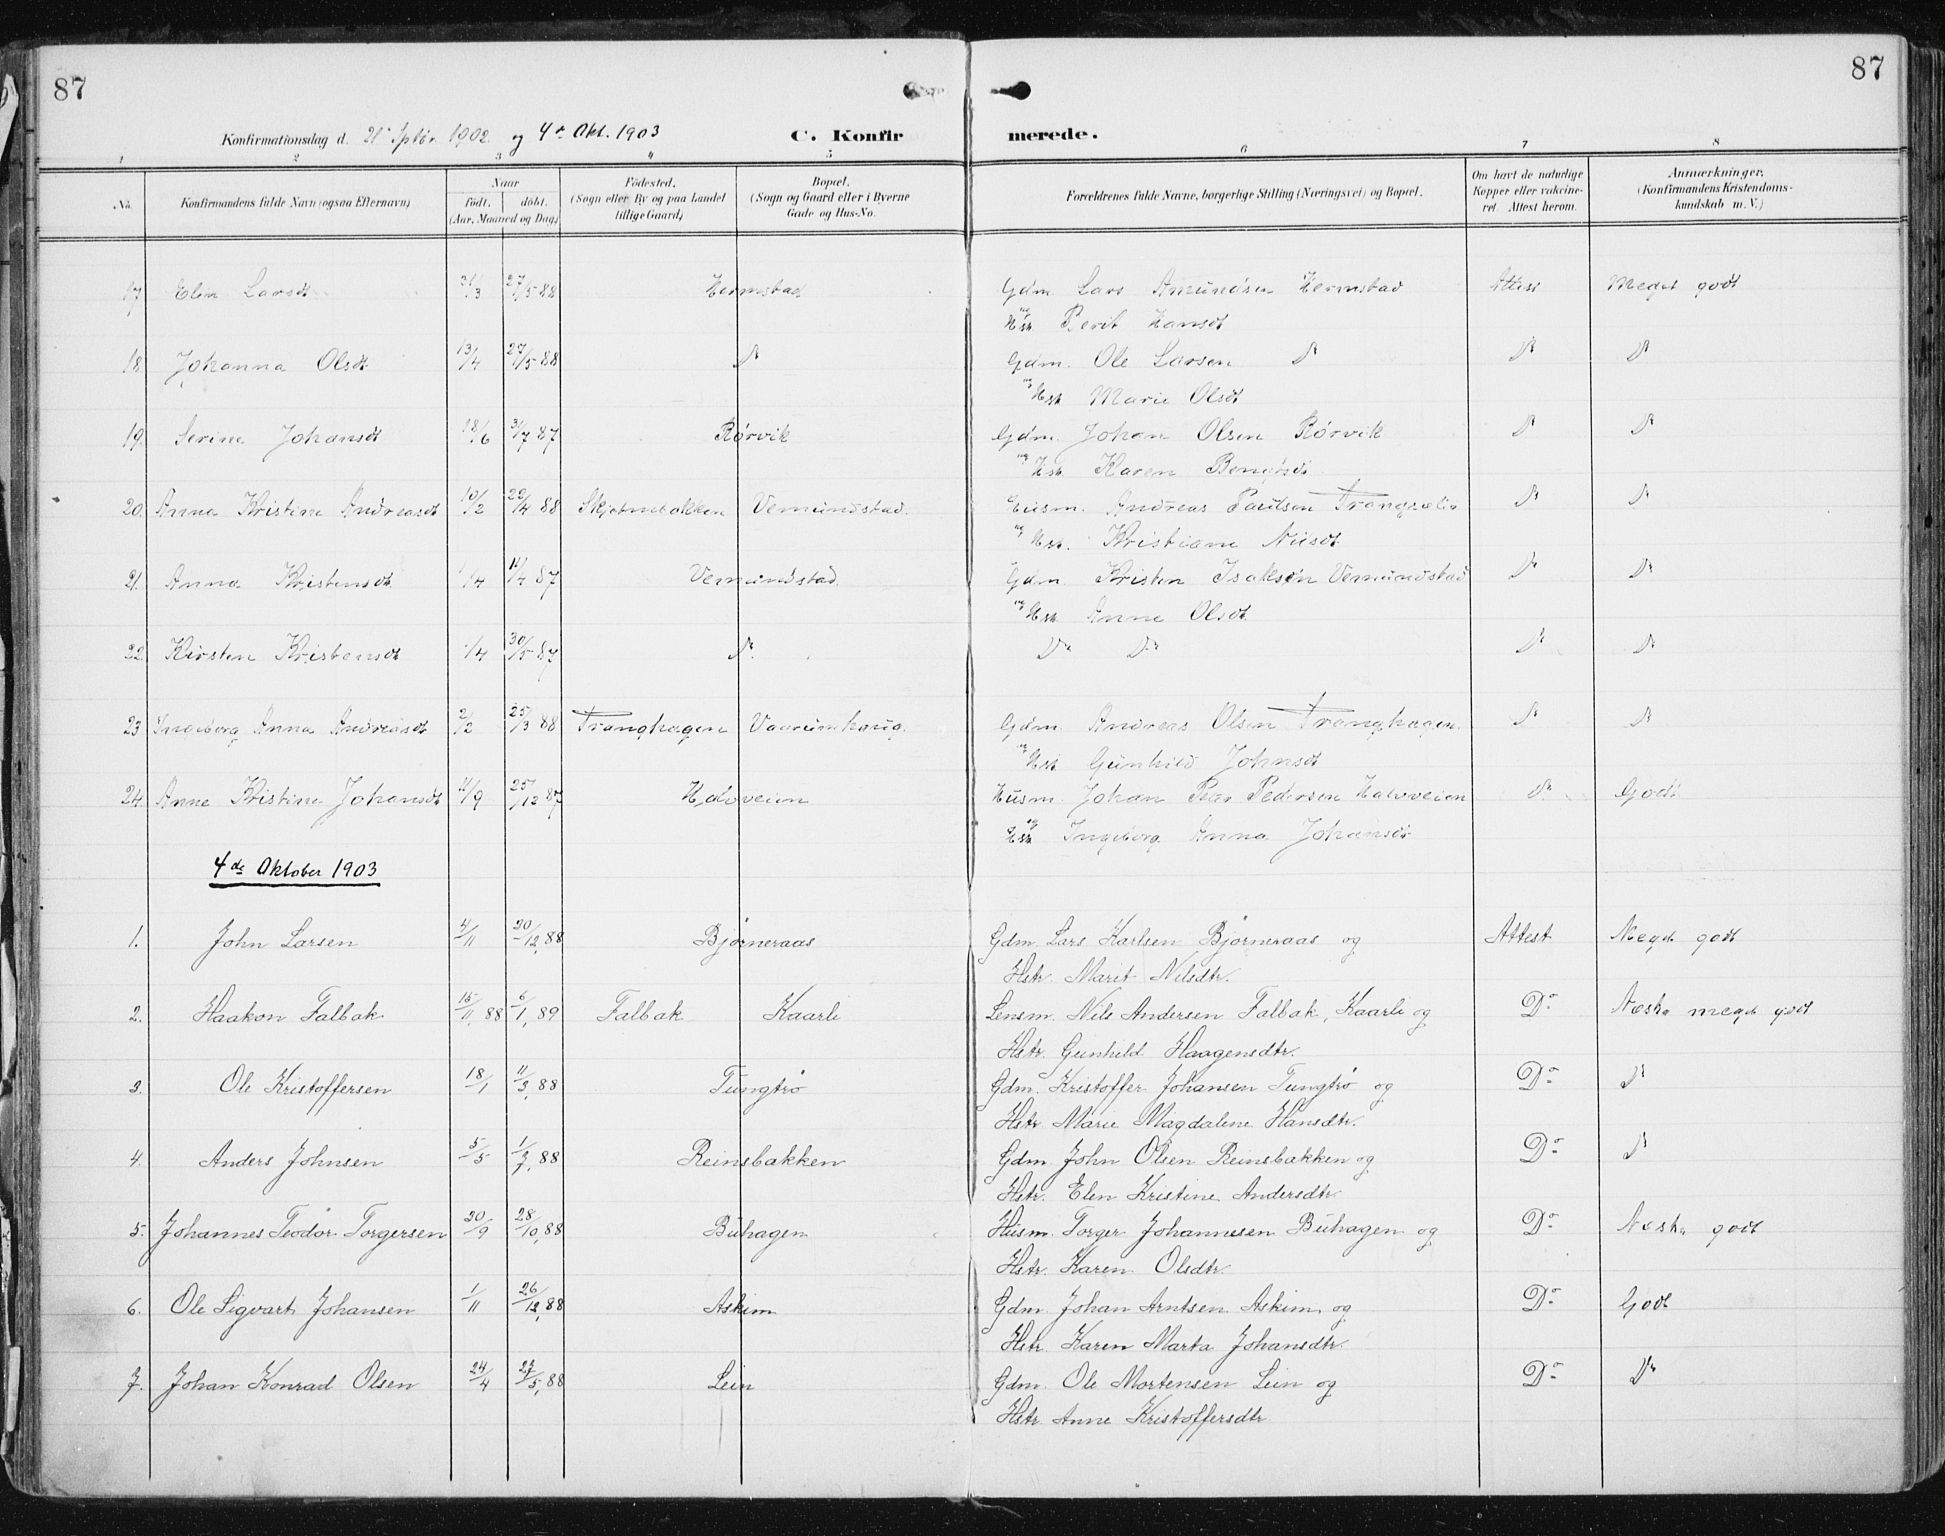 87
87
Konfirmationsdag d. 21 Sptbr. 1902 og 4de Okt. 1903 C. Konfirmerede.
1 2 3 4 5 6 7 8
No. Konfirmandens fulde Navn (ogsaa Efternavn) Naar født, døbt. (Aar, Maaned og Dag) Fødested. (Sogn eller By og paa Landet tillige Gaard) Bopæl. (Sogn og Gaard eller i Byerne Gade og Hus-No. Forældrenes fulde Navne, borgerlige Stilling (Næringsvei) og Bopæl. Om havt de naturlige Kopper eller vakcineret. Attest herom. Anmærkninger. (Konfirmandens Kristendomskundskab m. V.)
17 Elen Larsdt 31/3 27/5 88 Hermstad Gdm. Lars Amundsen Hermstad Attest Meget godt
og Hst. Berit Hansdt
18 Johanna Olsdt 13/4 27/5 88 Do Gdm. Ole Larsen Do Do Do
og Hst. Marie Olsdt
19. Serine Johansdt 18/6 31/7 87 Rørvik Gdm. Johan Olsen Rørvik Do Do
og Hst. Karen
20. Anna Kristine Andreasdt 10/2 22/4 88 Vemundstad. Husm. Andreas Paulsen Do Do
og Hst. Kristiane
21. Anna Kristensdt 1/4 87 Vemundstad. Gdm. Kristen Isaksen Vemundstad Do Do
og Hst. Anne Olsdt
22. Kirsten Kristensdt 1/4 30/5 87 Do. Do Do Do Do
23 Ingeborg Anna Andreasdt 2/2 25/3 88 Tranghagen Vaarumhaug. Gdm. Andreas Olsen Tranghagen. Do Do
og Hst. Gunhild Johnsdt
24. Anne Kristine Johansdt 11/9 25/12 87 Halvveien Husm. Johan Peter Pedersen Halvveien Do Godt
og Hst. Ingeborg Anna Johansdt
4de Oktober 1903
1. John Larsen 4/11 30/12, 88 Bjørneraas Gdm. Lars Karlsen Bjørneraas og Attest Meget godt
Hstr. Marit Nilsdtr.
2. Haakon Falbak 15/11, 88 6/1, 89 Falbak Kaarli Lensm. Nils Andersen Falbak, Kaarli og Do Næsten meget godt
Hstr. Gunhild Haagensdtr.
3. Ole Kristoffersen 18/1 11/3, 88 Tungtrø Gdm. Kristoffer Johansen Tungtrø og Do Do
Hstr. Marie Magdalene Hansdtr.
4. Anders Johnsen 5/5 1/7, 88 Reinsbakken Gdm. John Olsen Reinsbakken og Do Do
Hstr. Elen Kristine Andersdtr.
5. Johannes Teodor Torgersen 30/9 28/10, 88 Buhagen Husm. Torger Johannesen Buhagen og Do Næsten godt
Hstr. Karen Olsdtr.
6. Ole Sigvart Johansen 1/11 26/12, 88 Askim Gdm. Johan Arntsen Askim og Do Godt
Hstr. Karen Marta Johansdtr.
7. Johan Konrad Olsen 24/4 27/5, 88 Lein Gdm. Ole Mortensen Lein og Do Do
Hstr. Anne Kristoffersdtr.